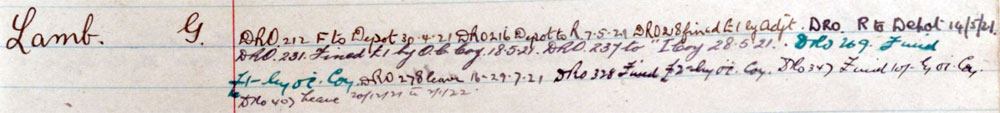 Lamb. G. DRO.212 F to Depot 30-4-21 DRO216 Depot to R 7-5-21 DRO218 fined £1 by Adjt. DRO. R to Depot 14/5/21.
DRO.231. Fined £1 by O.C. Coy. 18.5.21. DRO.237 to "I Coy 28.5.21. DRo 269. Fined
£1-by o/c. Coy. DRO278 leave 16-29.7.21 DRo 328 Fined £2-by o/c. Coy. DRo 347 Fined 10/- by o/c. Coy.
DRo 407 Leave 20/12/21 to 2/1/22.